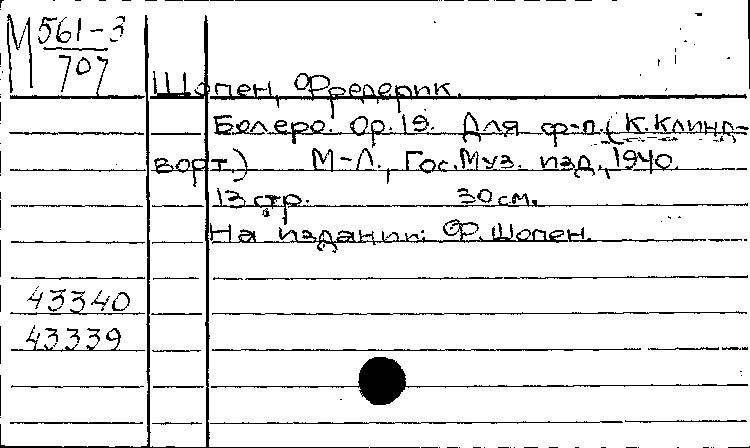 М 561-3
707
Шопен, Фредерик.
Болеро. Ор.19. Для ф-п. (К. Клинд-
ворт.) М-Л., Гос. Муз. изд., 1940.
13 стр. 30 см.
На издании: Ф. Шопен.
43340
43339